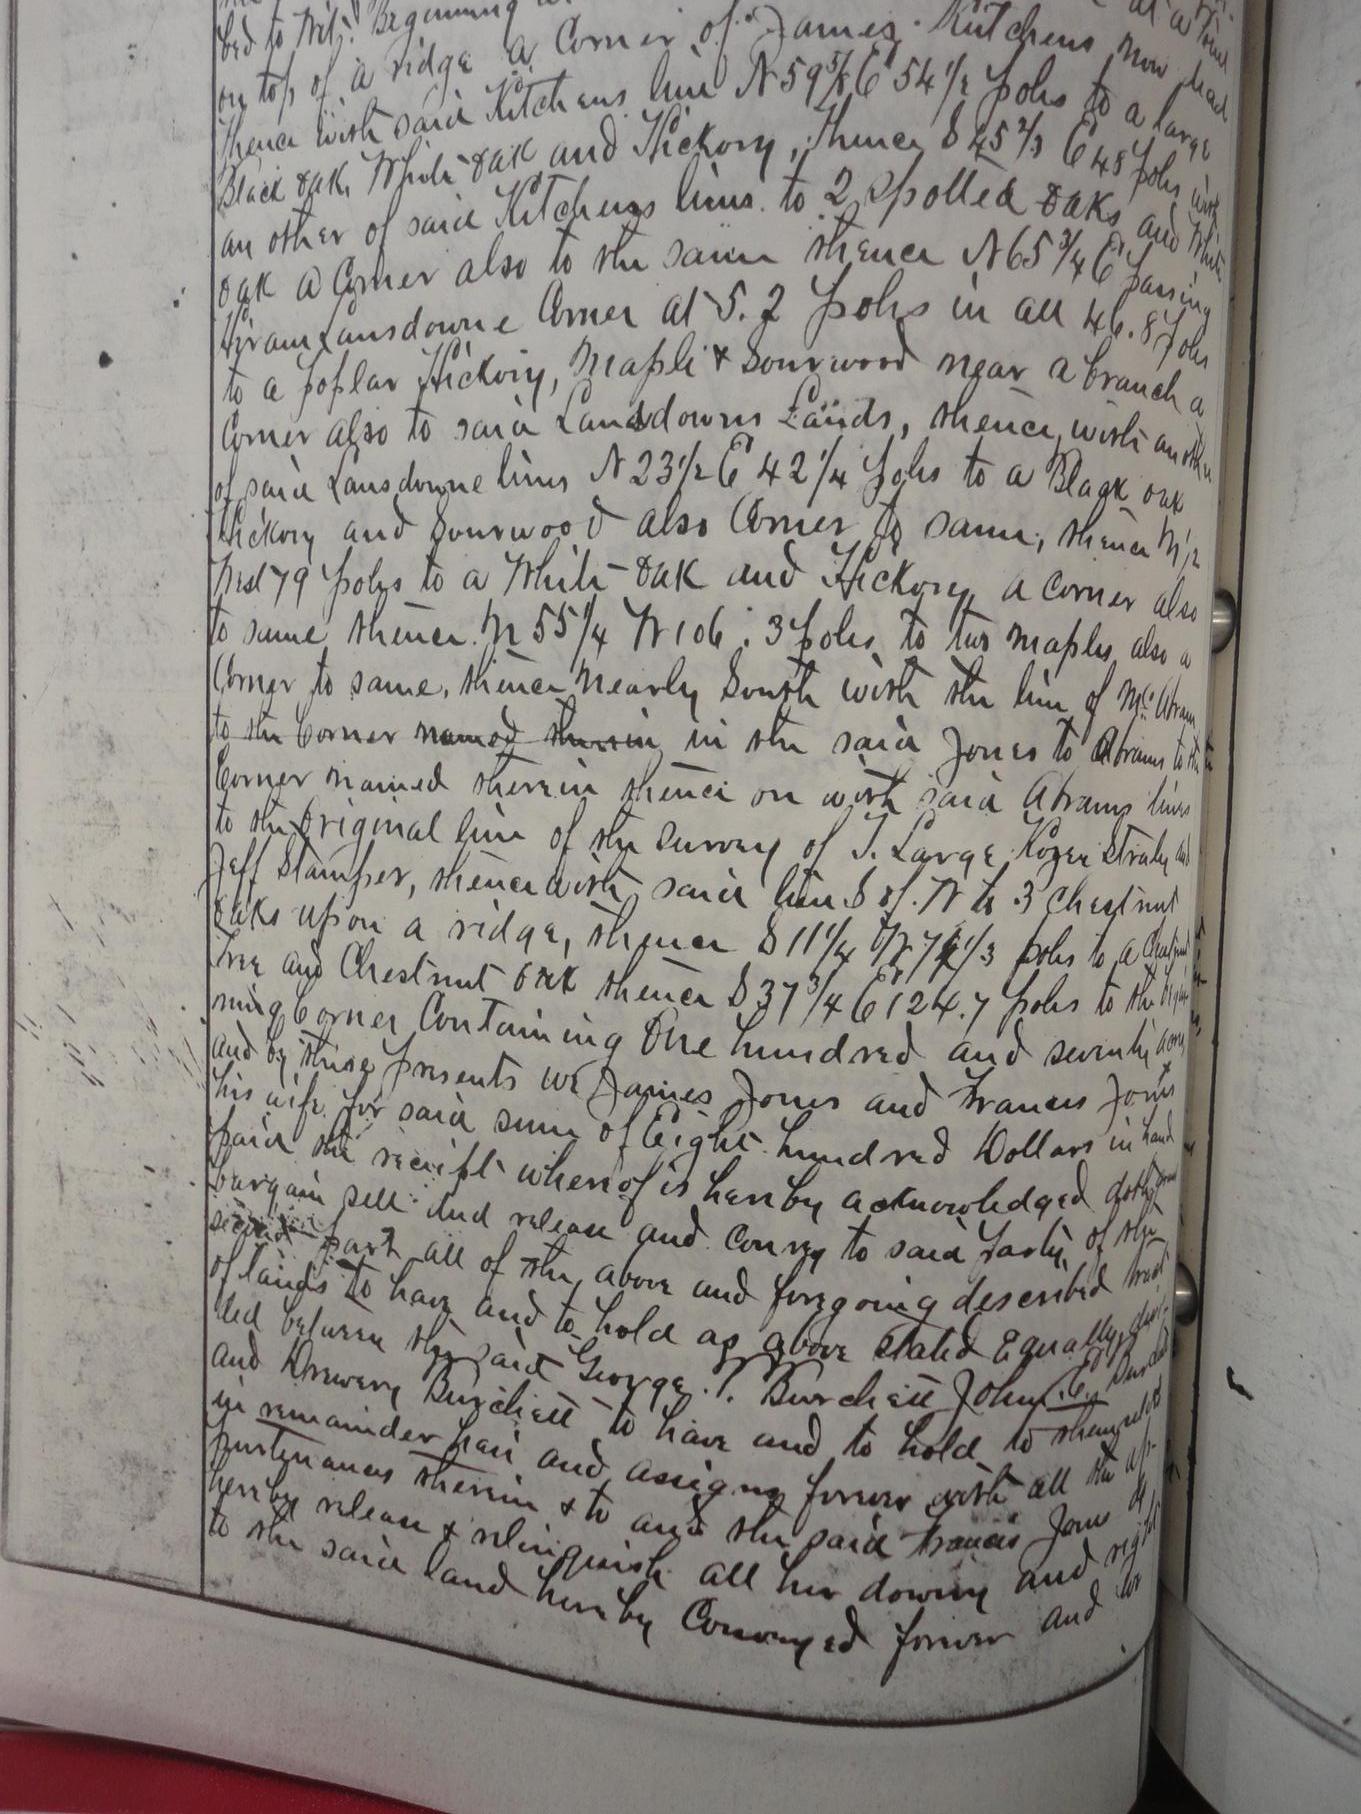 bed to Wit: Beginning at a
on top of a ridge a Corner of James Kitchens now dead
thence with said Kitchens line N 59 5/8 E 54 1/2 poles to a large
Black oak, White oak and Hickory, thence S 45 2/3 E 48 poles with
an other of said Kitchens lines to 2 spotted oaks and White
oak a Corner also to the same thence N 65 3/4 E passing
Hiram Lansdowne Corner at 5.2 poles in all 46.8 poles
to a poplar Hickory, Maple & Sourwood near a branch a
Corner also to said Lansdowns Lands, thence with another
of said Lansdowne lines N 23 1/2 E 42 1/4 poles to a Black oak
Hickory and Sourwood also Corner to same, thence N 1/2
West 79 poles to a White oak and Hickory a corner also
to same thence N 55 1/4 W 106.3 poles to two maples also a
Corner to same, thence nearly South with the line of Mc Abram
to the Corner named therein in the said Jones to Abrams to the
Corner named therein thence on with said Abrams lines
to the Original line of the survey of T. Large, Roger and
Jeff Stamper, thence with said line S of W to 3 Chestnut
oaks upon a ridge, thence S 11 1/4 W 74 1/3 poles to a Chestnut
tree and Chestnut oak thence S 37 3/4 E 124.7 poles to the Begin
ning Corner Containing One hundred and seventy acres
and by these presents we James Jones and Frances Jones
his wife for said sum of Eight hundred Dollars in hand
paid the receipt whereof is hereby acknowledged doth
bargain sell and release and convey to said party of the
second part all of the above and foregoing described tract
of lands to have and to hold as above stated Equally divi-
ded between the said George T. Burchett John E. Burchett
and Drewery Burchett to have and to hold to themselves
in remainder heir and assigns forever with all the ap-
purtenances therein & to and the said Frances Jones do
hereby release & relinquish all her dowry and right
to the said land hereby Conveyed forever and we